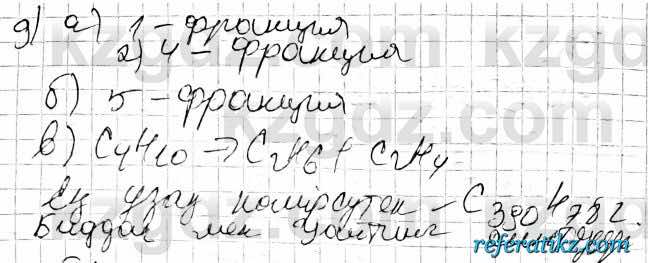 д) а) 1 - фракция
2) 4 - фракция
б) 5 - фракция
в) C4H10 → C2H6 + C2H4
Ең ұзақ көмірсутек - C390H782.
Биддал мен Уайтинг
kzgdz.com
referatikz.com